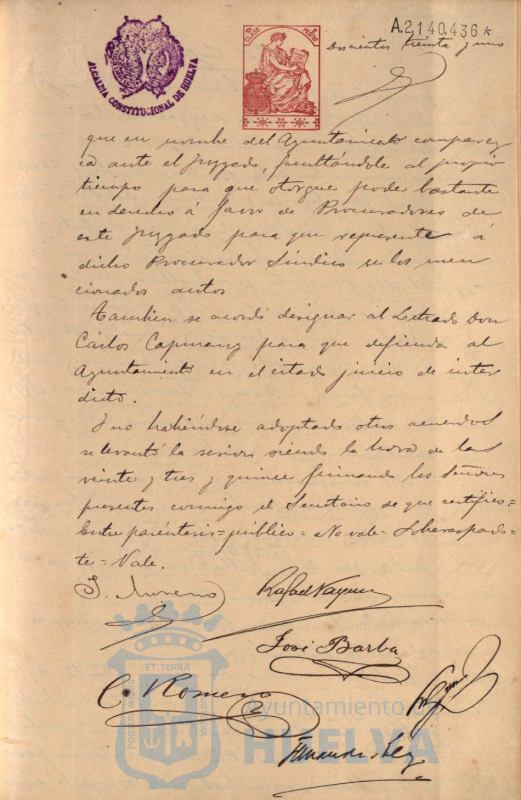 A.2140.436*
Doscientos treinta y uno
ALCALDIA CONSTITUCIONAL DE HUELVA
que en nombre del Ayuntamiento comparez
ca ante el Juzgado, facultándole al propio
tiempo para que otorgue poder bastante
en derecho á favor de Procuradores de
este Juzgado para que represente á
dicho Procurador Síndico en los men
cionados autos
Tambien se acordó designar al Letrado Don
Cárlos Capmany para que defienda al
Ayuntamiento en el citado juicio de inter
dicto.
Y no habiéndose adoptado otros acuerdos
se levantó la sesion siendo la hora de las
veinte y tres y quince firmando los Señores
presentes conmigo el Secretario de que certifico=
Entre paréntesis=público=No vale=Sobreraspado=
te=Vale.
Moreno
Rafael
José Barba
C. Romero
PORTUS MARIS ET TERRAE CUSTODIA
Ayuntamiento de
HUELVA